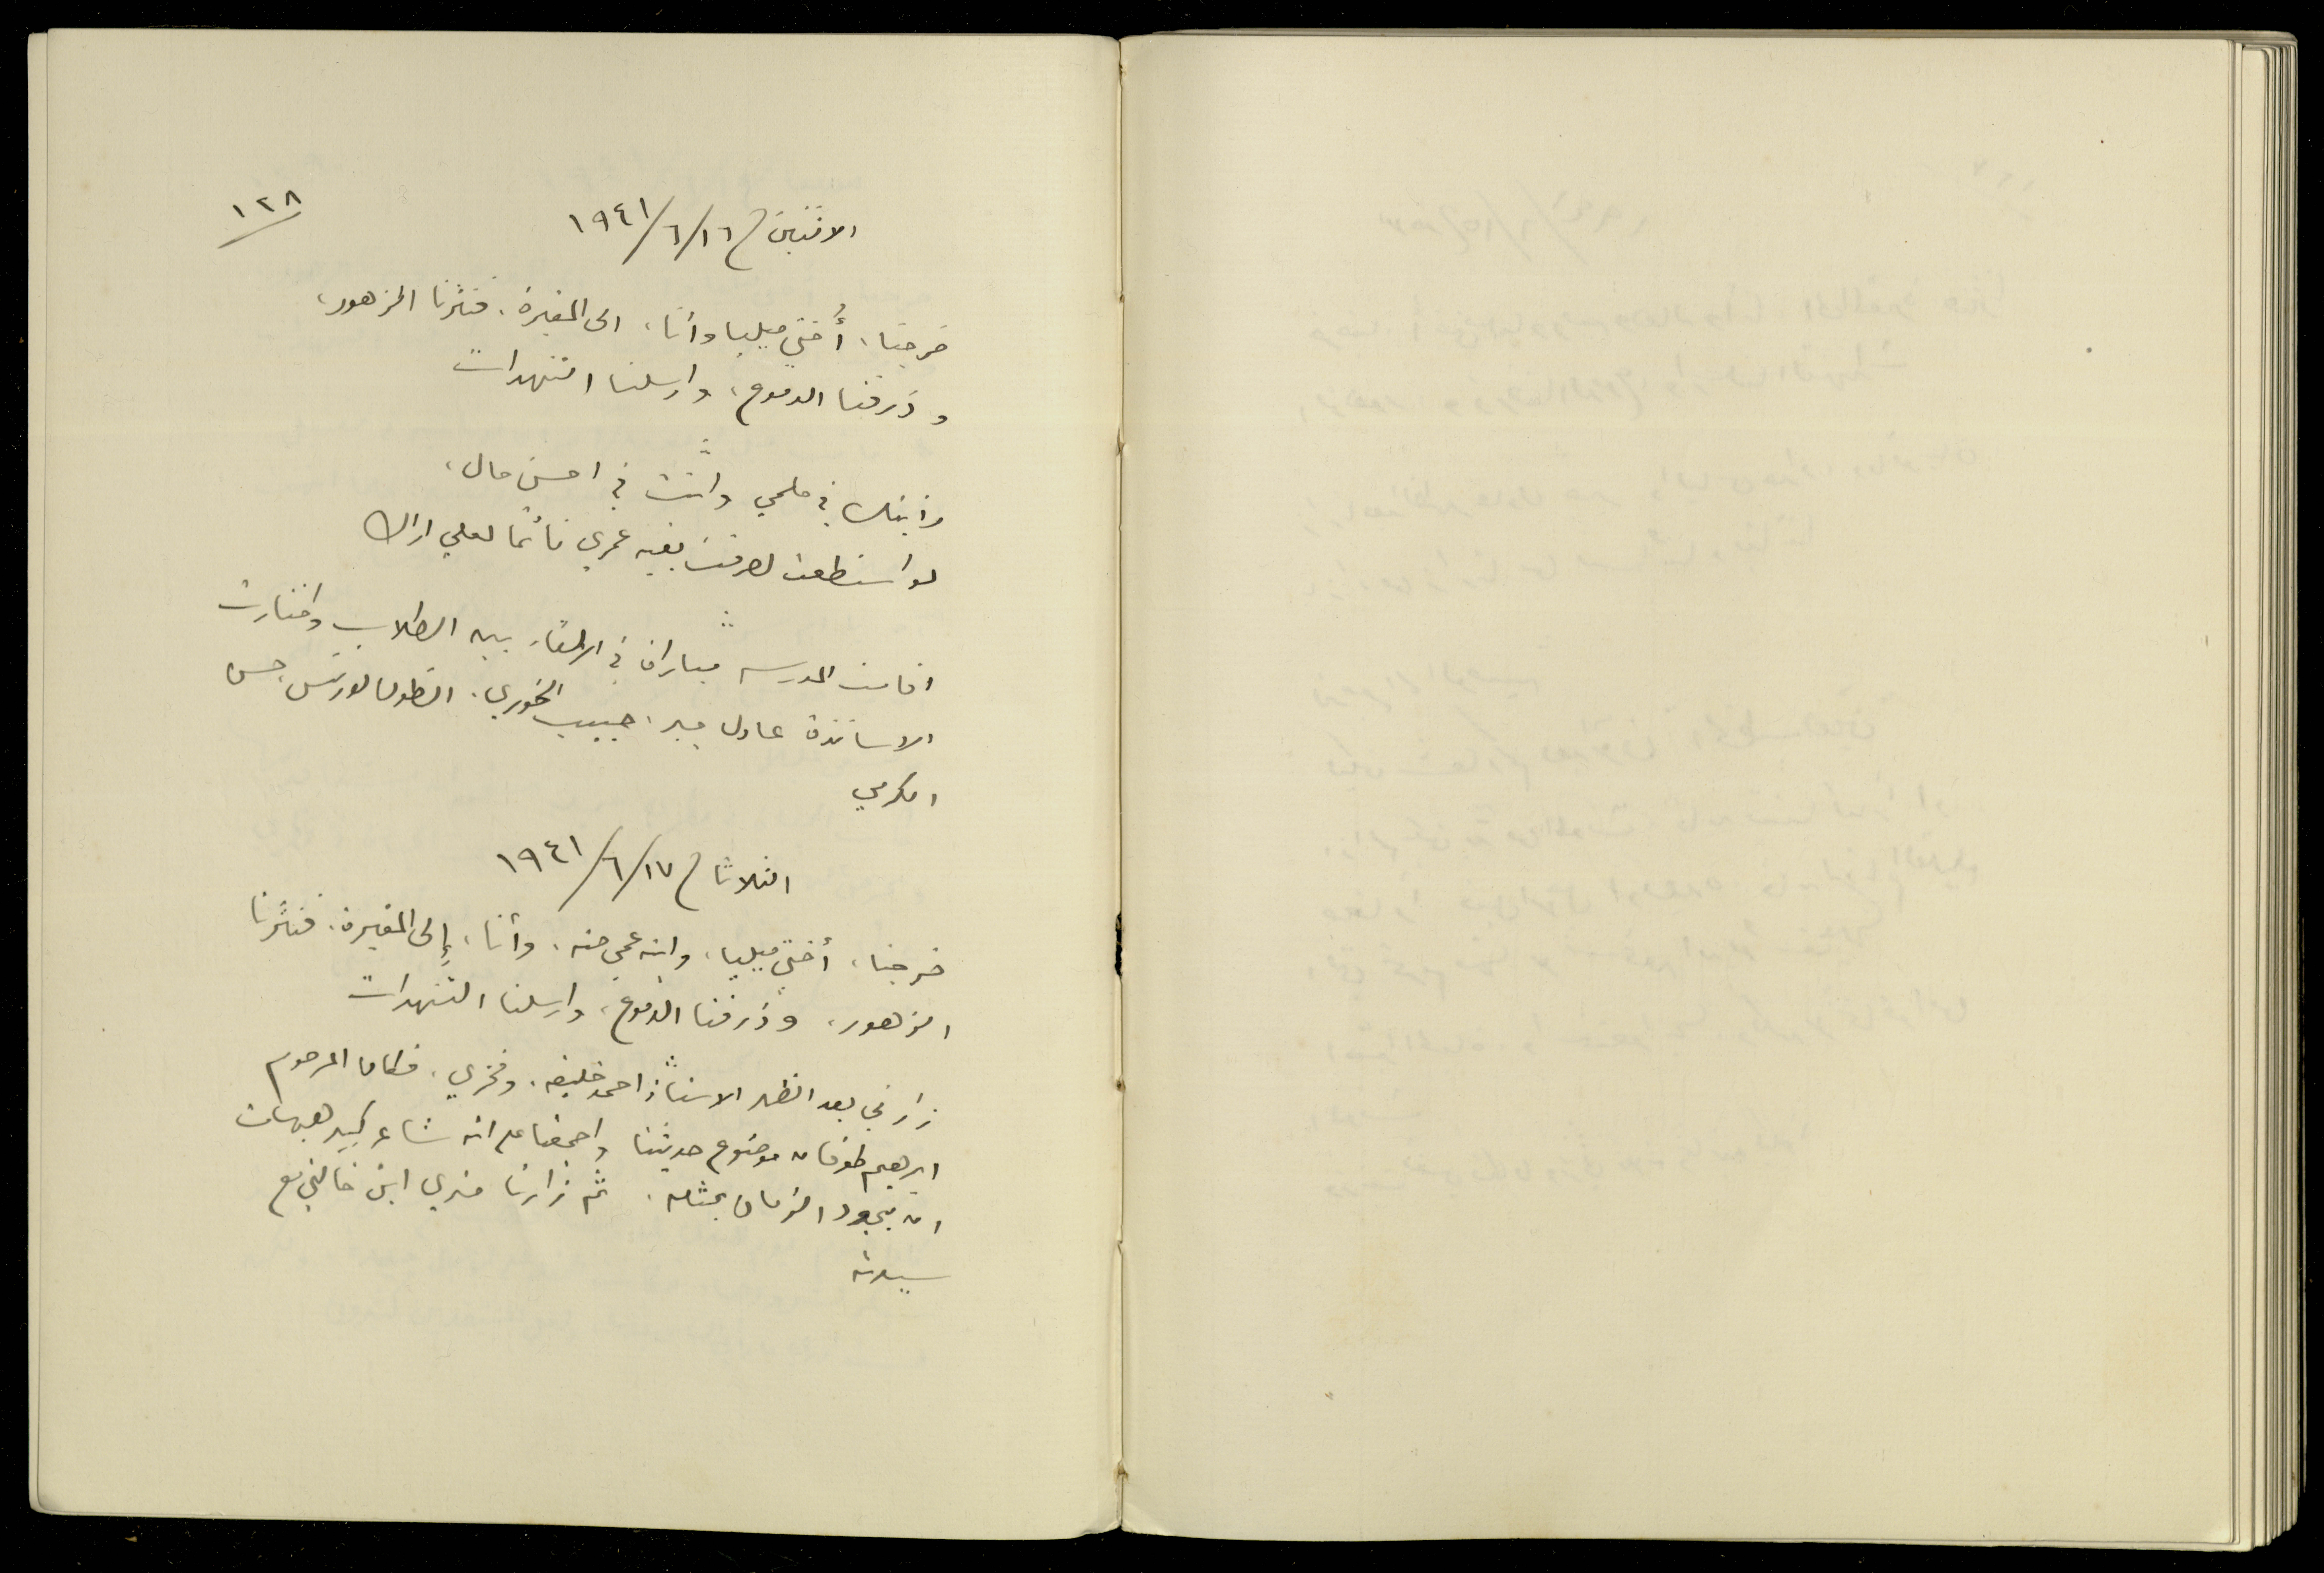 ١٢٨
الاثنين في ١٦/٦/١٩٤١
خرجنا، أُختي ميليا وأنا، الى المقبرة، فنثرنا الزهور،
وذرفنا الدموع، وارسلنا التنهدات
رأيتك في حلمي وأنت في احسن حال،
لو استطعت لصرفت بقية عمري نائمًا لعلي اراك
اقامت المدرسه مباراة في الالقاء بين الطلاب واختارت
الاساتذة عادل جبر، حبيب الخوري، انطون لورنس، حسن
الكرمي
الثلاثاء في ١٧/٦/١٩٤١
خرجنا، أختي ميليا، وابنه عمي حنه، وأنا، إلى المقبرة، فنثرنا
الزهور، وذرفنا الدموع، وارسلنا التنهدات
زارني بعد الظهر الاستاذ احمد خليفه، وفخري، فكان المرحوم
ابرهيم طوقان موضوع حديثنا واجمعنا على انه شاعر كبير هيهات
ان يجود الزمان بمثله، ثم زارنا فخري ابن خالتي مع
سيدته